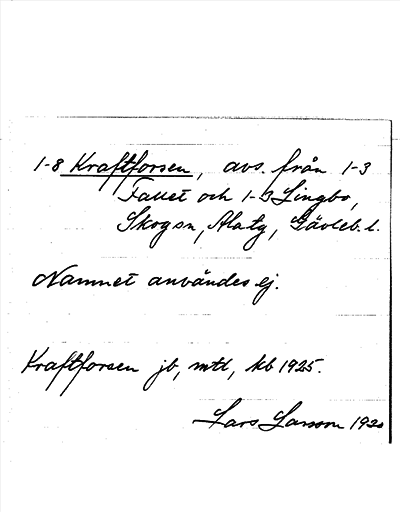 1-8 Kraftforsen, avs. från 1-3
Fallet och 1-3 Lingbo,
Skog sn, Ala tg, Gävleb. l.
Namnet användes ej.
Kraftforsen jb, mtl, kb 1925.
Lars Larsson 192